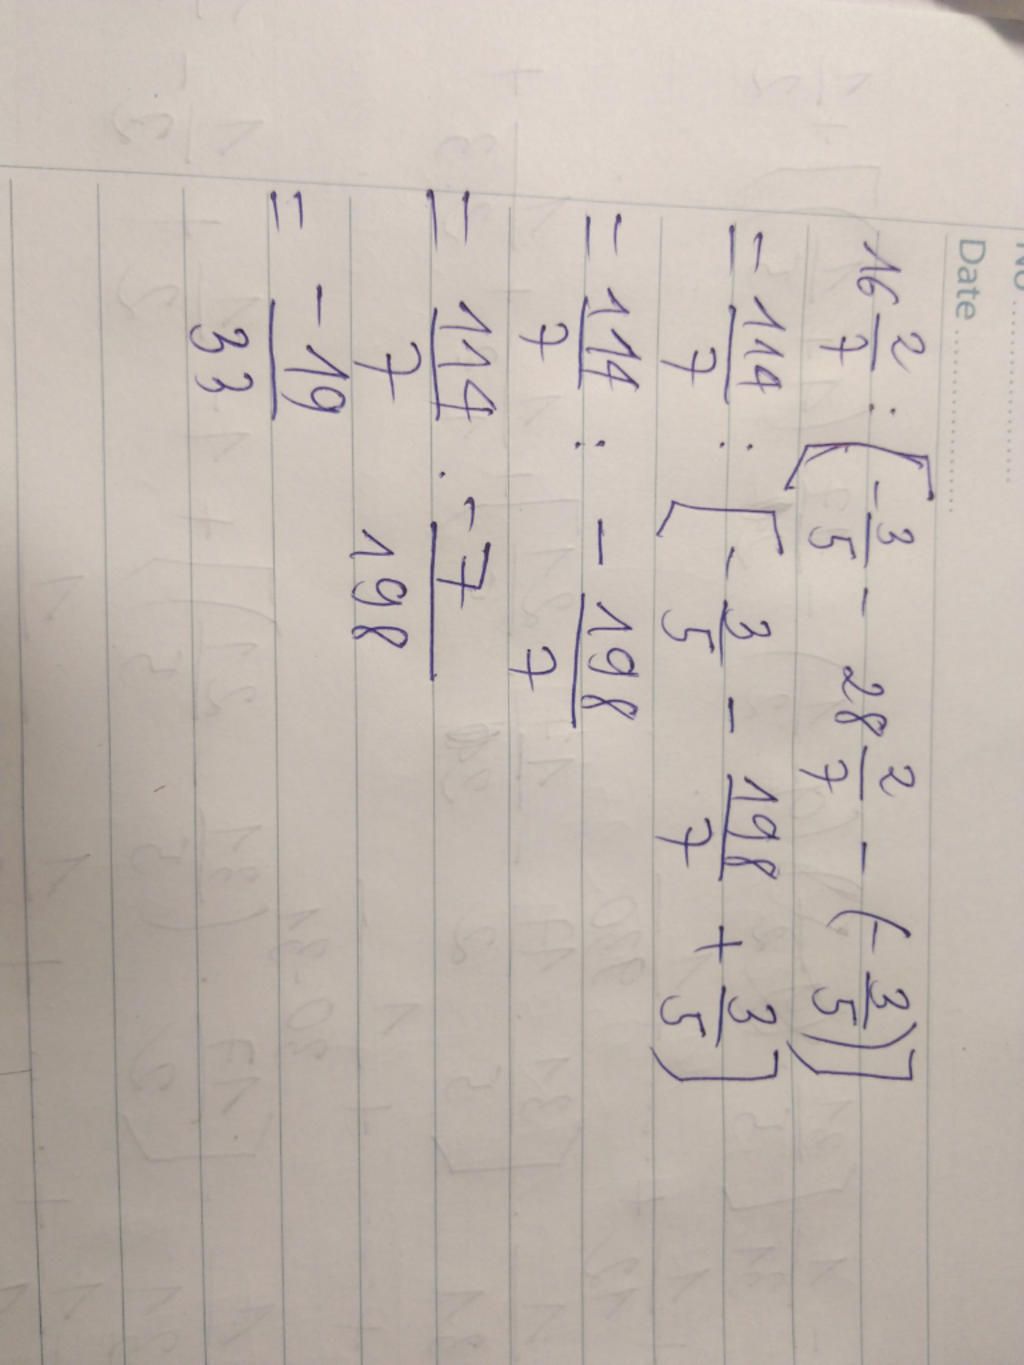 No ..........
Date ..............
16 2/7 : [-3/5 - 28 2/7 - (-3/5)]
= 114/7 : [-3/5 - 198/7 + 3/5]
= 114/7 : -198/7
= 114/7 . -7/198
= -19/33